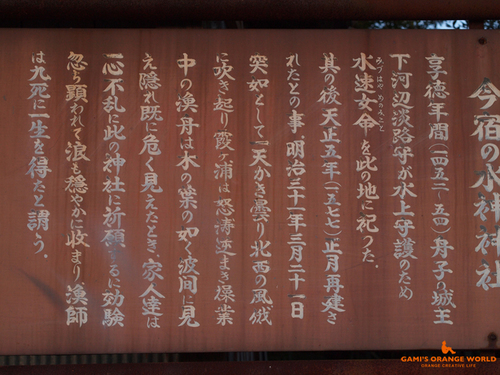 今宿の水神神社
享徳年間(一四五二〜五四)舟子の城主
下河辺淡路守が水上守護のため
水速女命を此の地に祀つた。
みづはやめのみこと
其の後天正五年(一五七七)正月再建さ
れたとの事明治三十一年三月二十一日
突如として『天かき曇り北西の風俄
に吹き起り霞ヶ浦は怒涛逆まき操業
中の漁舟は木の葉の如く波間に見
え隠れ既に危く見えたとき、家人達は
一心不乱に此の神社に祈願するに効験
忽ち顕われて浪も穏やかに收まり漁師
は九死に一生を得たと謂う。
GAMI'S ORANGE WORLD
ORANGE CREATIVE LIFE